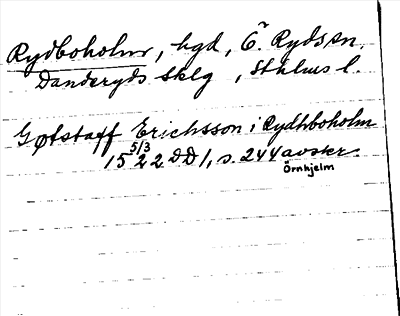 Rydboholm, hgd, Ö. Ryds sn.
Danderyds sklg, Sthlms l.
Gøtstaff Erichsson i Rydhboholm
15 5/3 22 DD 1, s. 244 avskr.
Örnhjelm